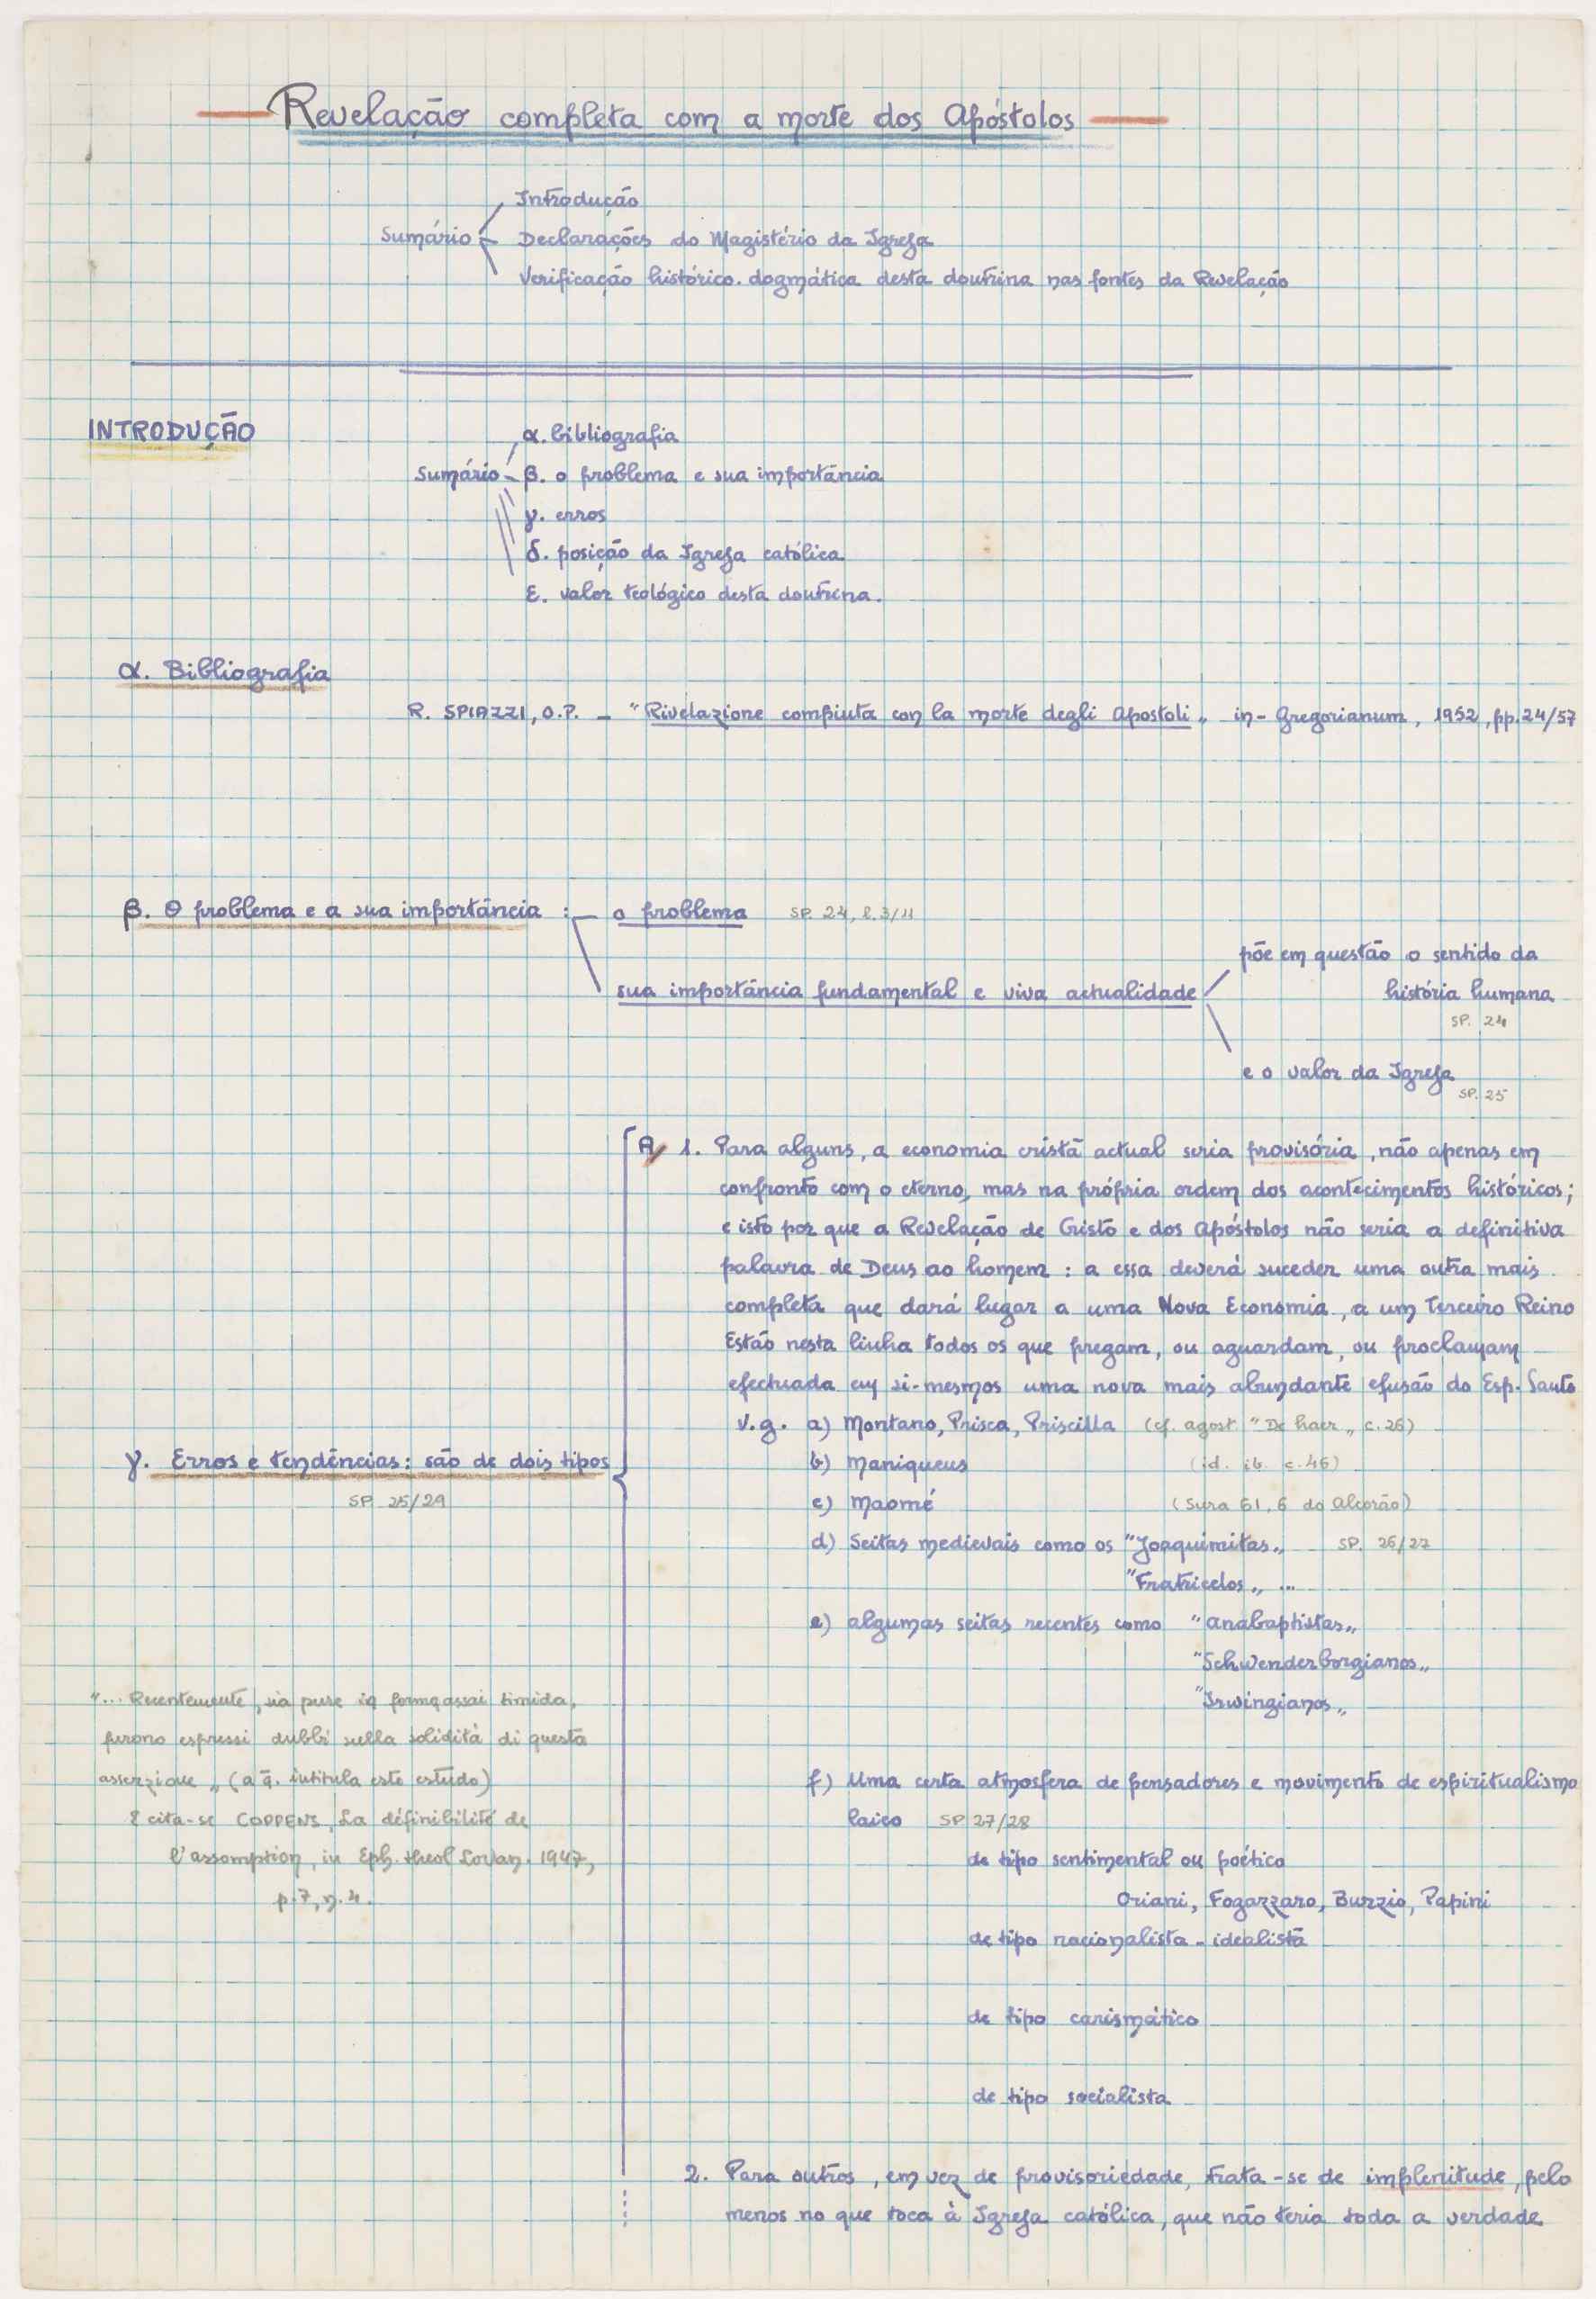 Revelação completa com a morte dos Apóstolos
Introdução
Sumário
Declarações do Magistério da Igreja
Verificação histórico-dogmática desta doutrina nas fontes da Revelação
INTRODUÇÃO
α. bibliografia
Sumário
β. o problema e sua importância
γ. erros
δ. posição da Igreja católica
ε. valor teológico desta doutrina.
α. Bibliografia
R. SPIAZZI, O.P. - "Rivelazione compiuta con la morte degli Apostoli" in - Gregorianum, 1952, pp. 24/57
β. O problema e a sua importância :
o problema SP. 24, l. 3/11
põe em questão o sentido da
sua importância fundamental e viva actualidade
história humana
SP. 24
e o valor da Igreja
SP. 25
A 1. Para alguns, a economia cristã actual seria provisória, não apenas em
confronto com o eterno, mas na própria ordem dos acontecimentos históricos;
e isto por que a Revelação de Cristo e dos Apóstolos não seria a definitiva
palavra de Deus ao homem : a essa deverá suceder uma outra mais
completa que dará lugar a uma Nova Economia, a um Terceiro Reino
Estão nesta linha todos os que pregam, ou aguardam, ou proclamam
efectuada em si-mesmos uma nova mais abundante efusão do Esp. Santo
v.g. a) Montano, Prisca, Priscilla (cf. Agost. "De haer" c. 26)
γ. Erros e tendências: são de dois tipos
b) Maniqueus (id. ib. c. 46)
SP. 25/29
c) Maomé (Sura 61, 6 do Alcorão)
d) Seitas medievais como os "Joaquimitas" SP. 26/27
"Fratricelos" ...
e) algumas seitas recentes como "Anabaptistas"
"Schwenderborgianos"
"Irwingianos"
"... Recentemente, sia pure in forma assai timida,
furono espressi dubbi sulla solidità di questa
asserzione" (a q. intitula este estudo)
E cita-se COPPENS, La définibilité de
l'assomption, in Eph. theol. Lovan. 1947,
p. 7, n. 4.
f) Uma certa atmosfera de pensadores e movimento de espiritualismo
laico SP 27/28
de tipo sentimental ou poético
Oriani, Fogazzaro, Burzio, Papini
de tipo racionalista - idealista
de tipo carismático
de tipo socialista
2. Para outros, em vez de provisoriedade, trata-se de implenitude, pelo
menos no que toca à Igreja católica, que não teria toda a verdade